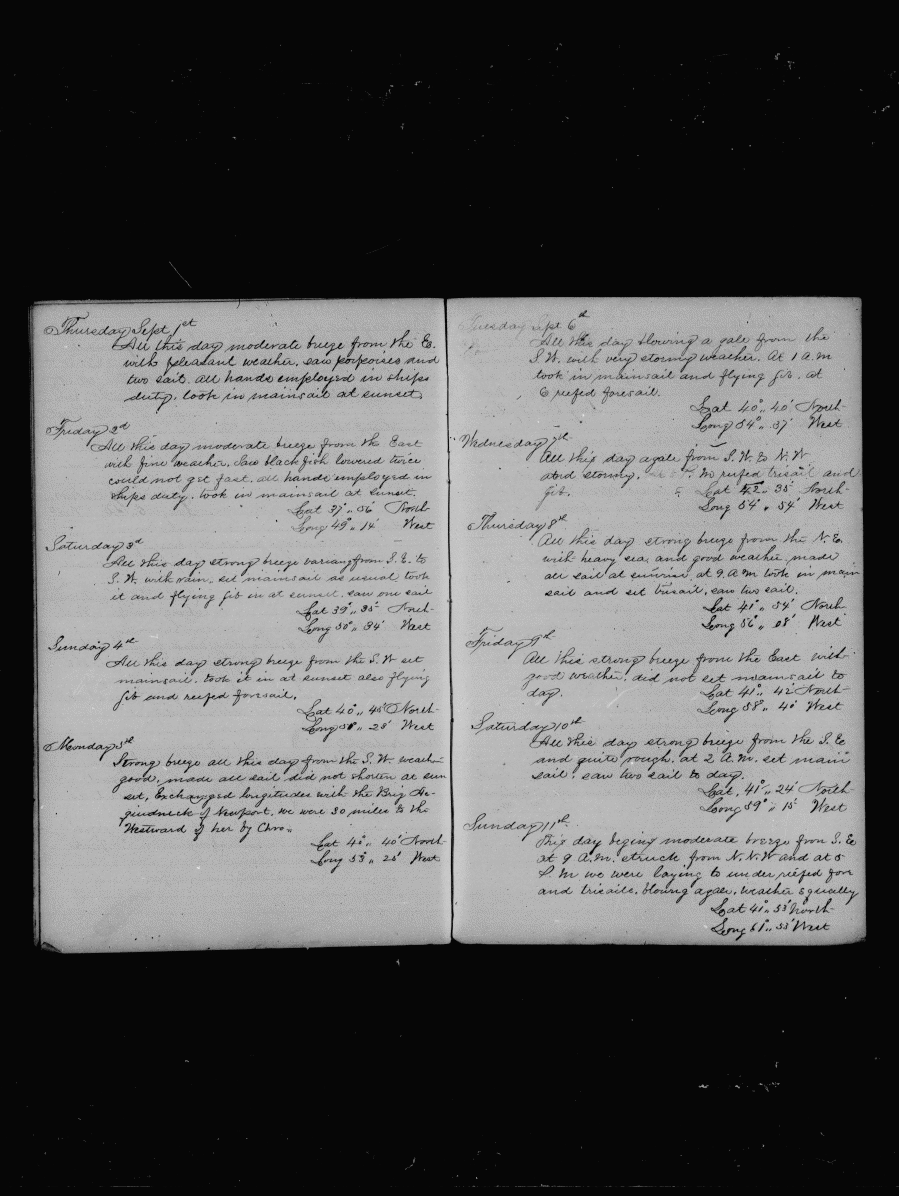 Thursday Sept 1st
All this day moderate breeze from the E.
with pleasant weather, saw porpoises and
two sail. all hands employed in ships
duty. took in mainsail at sunset.
Friday 2d
All this day moderate breeze from the East
with fine weather. Saw blackfish lowered twice
could not get fast. all hands employed in
ships duty. took in mainsail at sunset.
Lat 37° 56' North
Long 49° 14' West
Saturday 3d
All this day strong breeze varying from S.E. to
S.W. with rain. set mainsail as usual took
it and flying jib in at sunset. saw one sail
Lat 39° 35' North
Long 50° 34' West
Sunday 4th
All this day strong breeze from the S.W set
mainsail. took it in at sunset also flying
jib and reefed foresail.
Lat 40° 45' North
Long 25' West
Monday 5th
Strong breeze all this day from the S.W. weath
good, made all sail did not shorten at sun
set. Exchanged longitudes with the Brig A-
quidneck of Newport. we were 30 miles to the
Westward of her by Chro..
Lat 40° 40' North
Long 53° 25' West
Tuesday Sept 6th
All this day blowing a gale from the
S.W. with very stormy weather. At 1 A.M
took in mainsail and flying jib. at
6 reefed foresail.
Lat 40° 40' North
Long 54° 37' West
Wednesday 7th
All this day a gale from S.W. to N.W
and stormy. P.M reefed trisail and
jib. Lat 42° 35' North
Long 54° 54' West
Thursday 8th
All this day strong breeze from the N.E.
with heavy sea, and good weather, made
all sail at sunrise, at 9. A.M took in main
sail and set trisail, saw two sail.
Lat 41° 54' North
Long 56° 08' West
Friday 9th
All this strong breeze from the East with
good weather. did not set mainsail to
day. Lat 41° 42' North
Long 58° 40' West
Saturday 10th
All this day strong breeze from the S.E
and quite rough. at 2 A.M. set main
sail. saw two sail to day.
Lat. 41° 24' North
Long 59° 15' West
Sunday 11th
This day begins moderate breeze from S.E
at 9 A.M. struck from N.N.W and at 5
P.M we were laying to under reefed fore
and trisails, blowing a gale, weather squally
Lat 41° 53' North
Long 61° 53' West